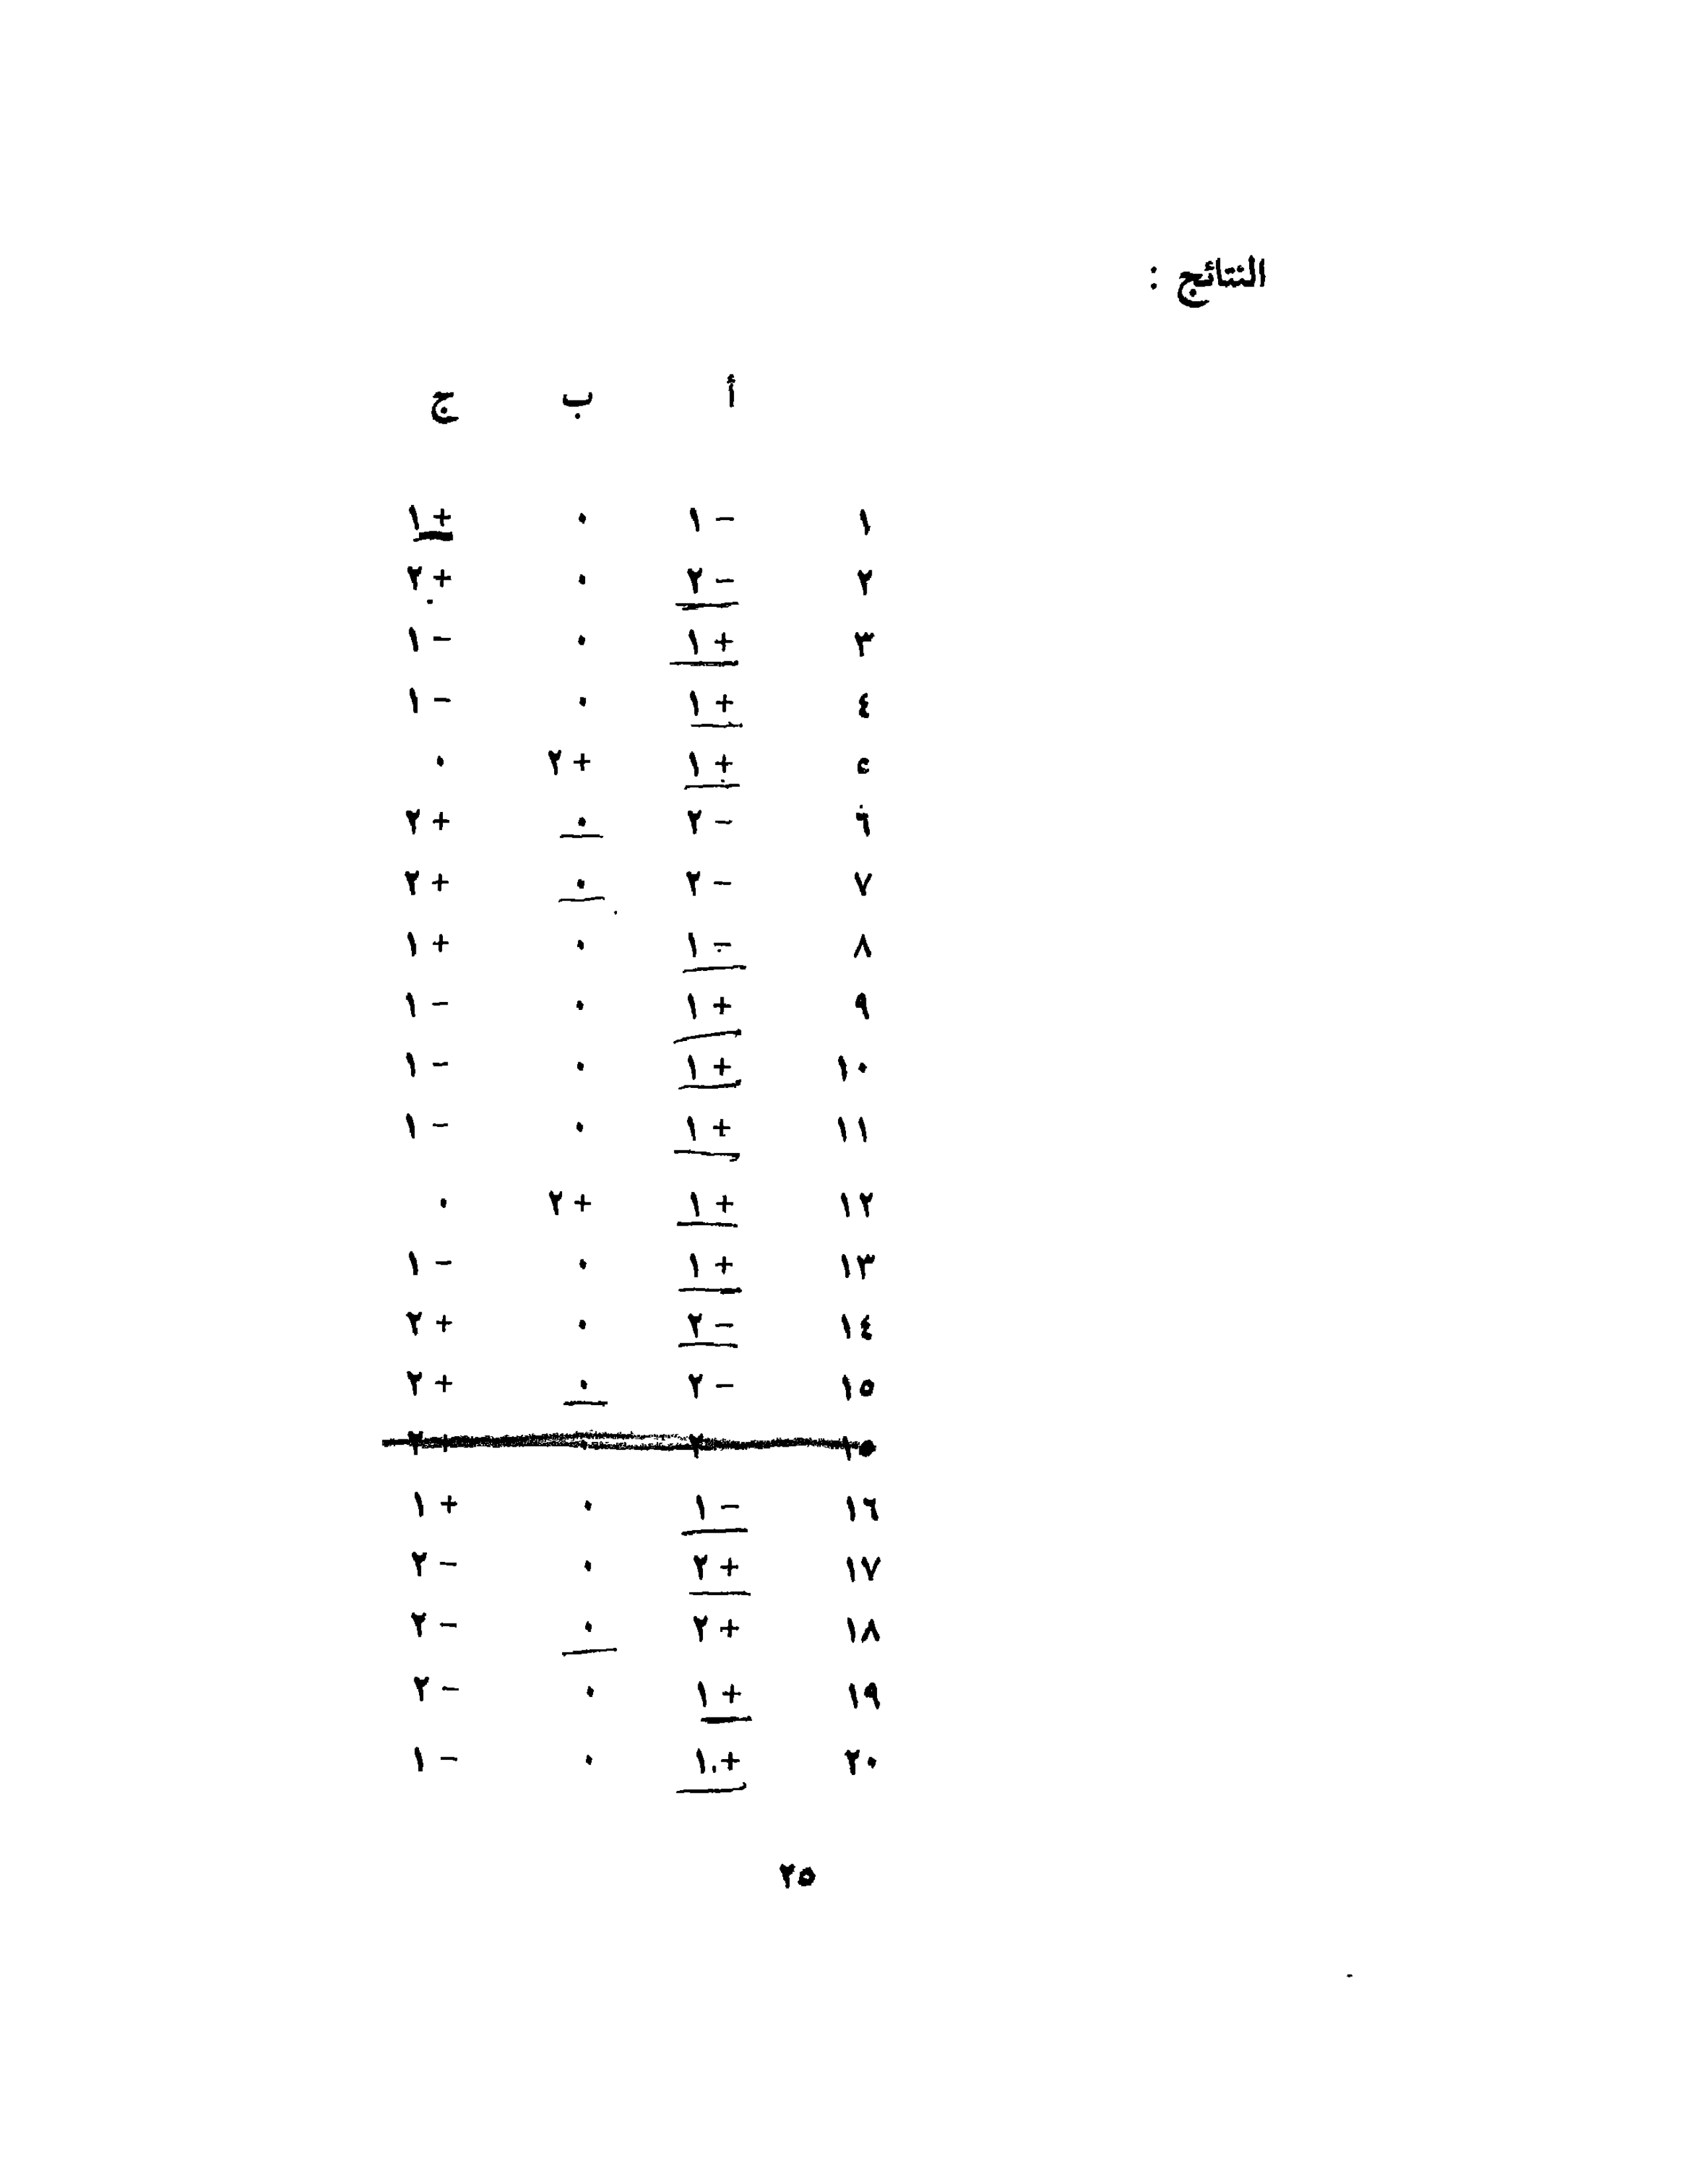 النتائج :
أ ب ج
١ - ١ ٠ + ١
٢ - ٢ ٠ + ٢
٣ + ١ ٠ - ١
٤ + ١ ٠ - ١
٥ + ١ + ٢ ٠
٦ - ٢ ٠ + ٢
٧ - ٢ ٠ + ٢
٨ - ١ ٠ + ١
٩ + ١ ٠ - ١
١٠ + ١ ٠ - ١
١١ + ١ ٠ - ١
١٢ + ١ + ٢ ٠
١٣ + ١ ٠ - ١
١٤ - ٢ ٠ + ٢
١٥ - ٢ ٠ + ٢
١٦ - ١ ٠ + ١
١٧ + ٢ ٠ - ٢
١٨ + ٢ ٠ - ٢
١٩ + ١ ٠ - ٢
٢٠ + ١ ٠ - ١
٢٥